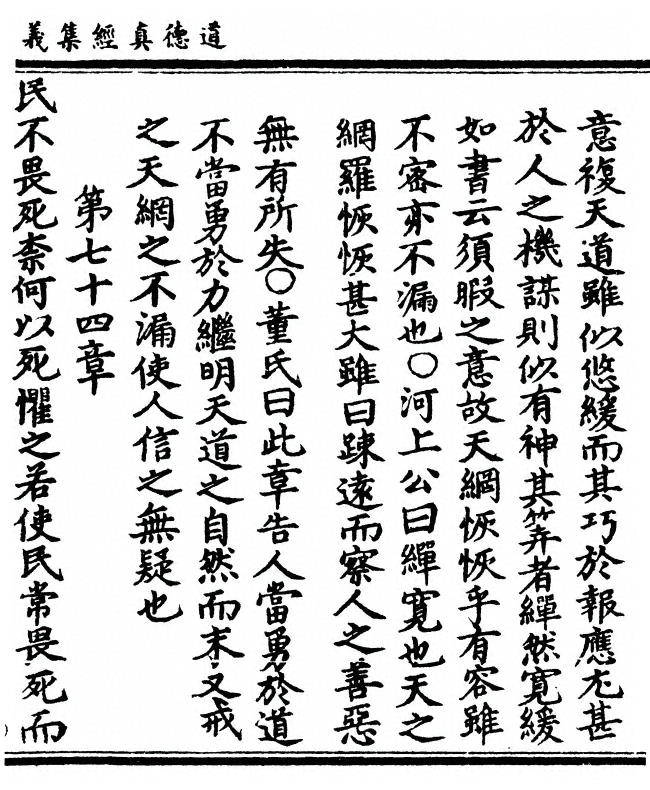 道德真經集義
意復天道雖似悠緩而其巧於報應尤甚
於人之機謀則似有神其筭者繟然寬緩
如書云須暇之意故天網恢恢乎有容雖
不密亦不漏也○河上公曰繟寬也天之
網羅恢恢甚大雖曰踈遠而察人之善惡
無有所失○董氏曰此章告人當勇於道
不當勇於力繼明天道之自然而末又戒
之天網之不漏使人信之無疑也
第七十四章
民不畏死柰何以死懼之若使民常畏死而